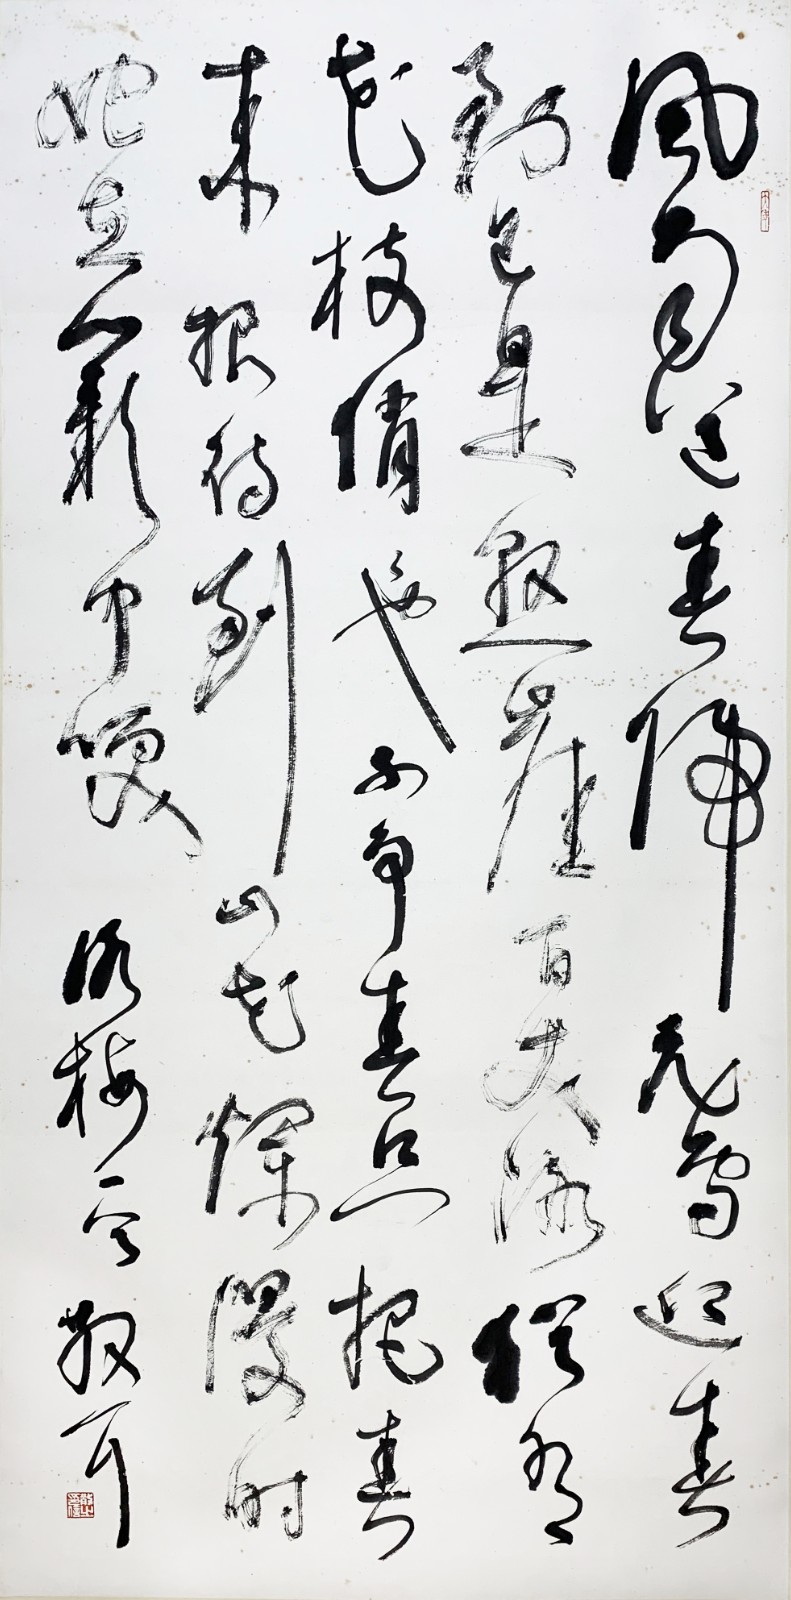 風雨送春歸飛雪迎春
到已是懸崖百丈冰猶有
花枝俏俏也不争春只把春
来報待到山花爛漫时
她在叢中笑 詠梅